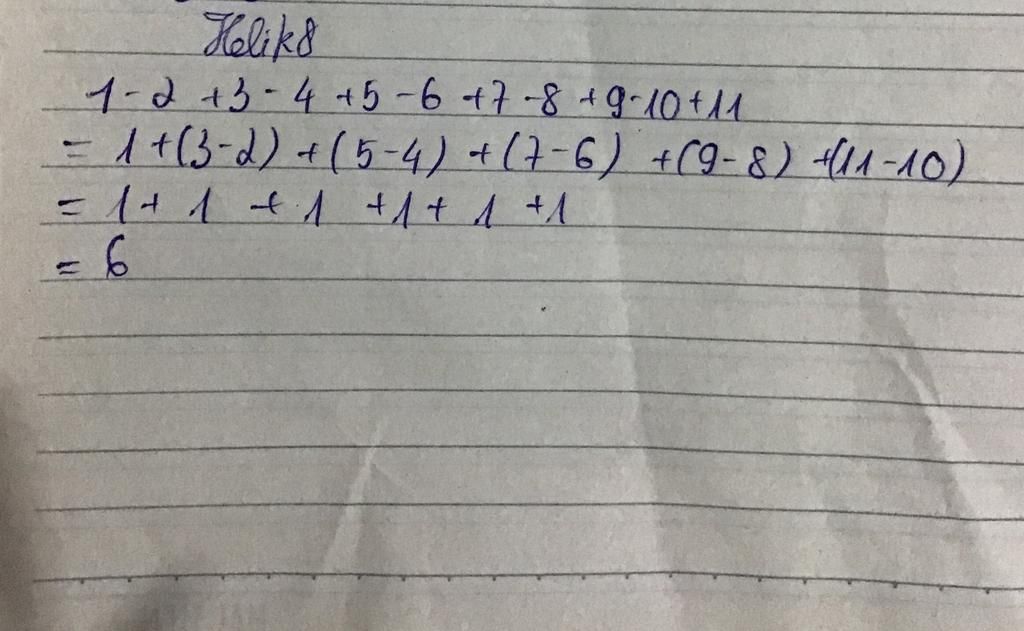 Helik8
1-2+3-4+5-6+7-8+9-10+11
= 1+(3-2)+(5-4)+(7-6)+(9-8)+(11-10)
= 1+1+1+1+1+1
= 6